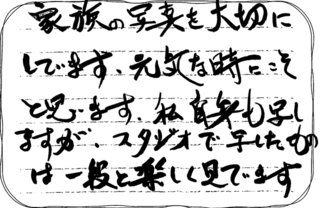 家族の写真を大切に
してます、元気な時にこそ
と思います、私自身も写し
ますが、スタジオで写したもの
は一段と楽しく見てます